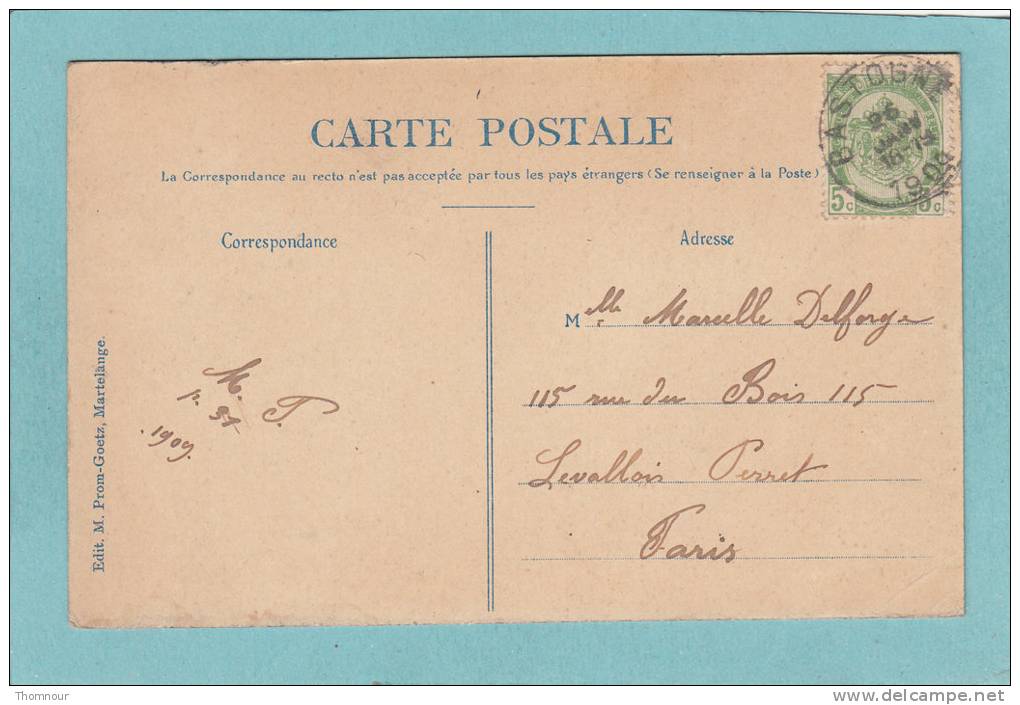 CARTE POSTALE
La Correspondance au recto n'est pas acceptée par tous les pays étrangers (Se renseigner à la Poste)
BASTOGNE
26
JANV
1909
5c 5c
Correspondance
Adresse
Mlle Marcelle Delforge
115 rue du Bois 115
Levallois Perret
Paris
M.
T.
1909.
Edit. M. Prom-Goetz, Martelange.
Thomnour
www.delcampe.net